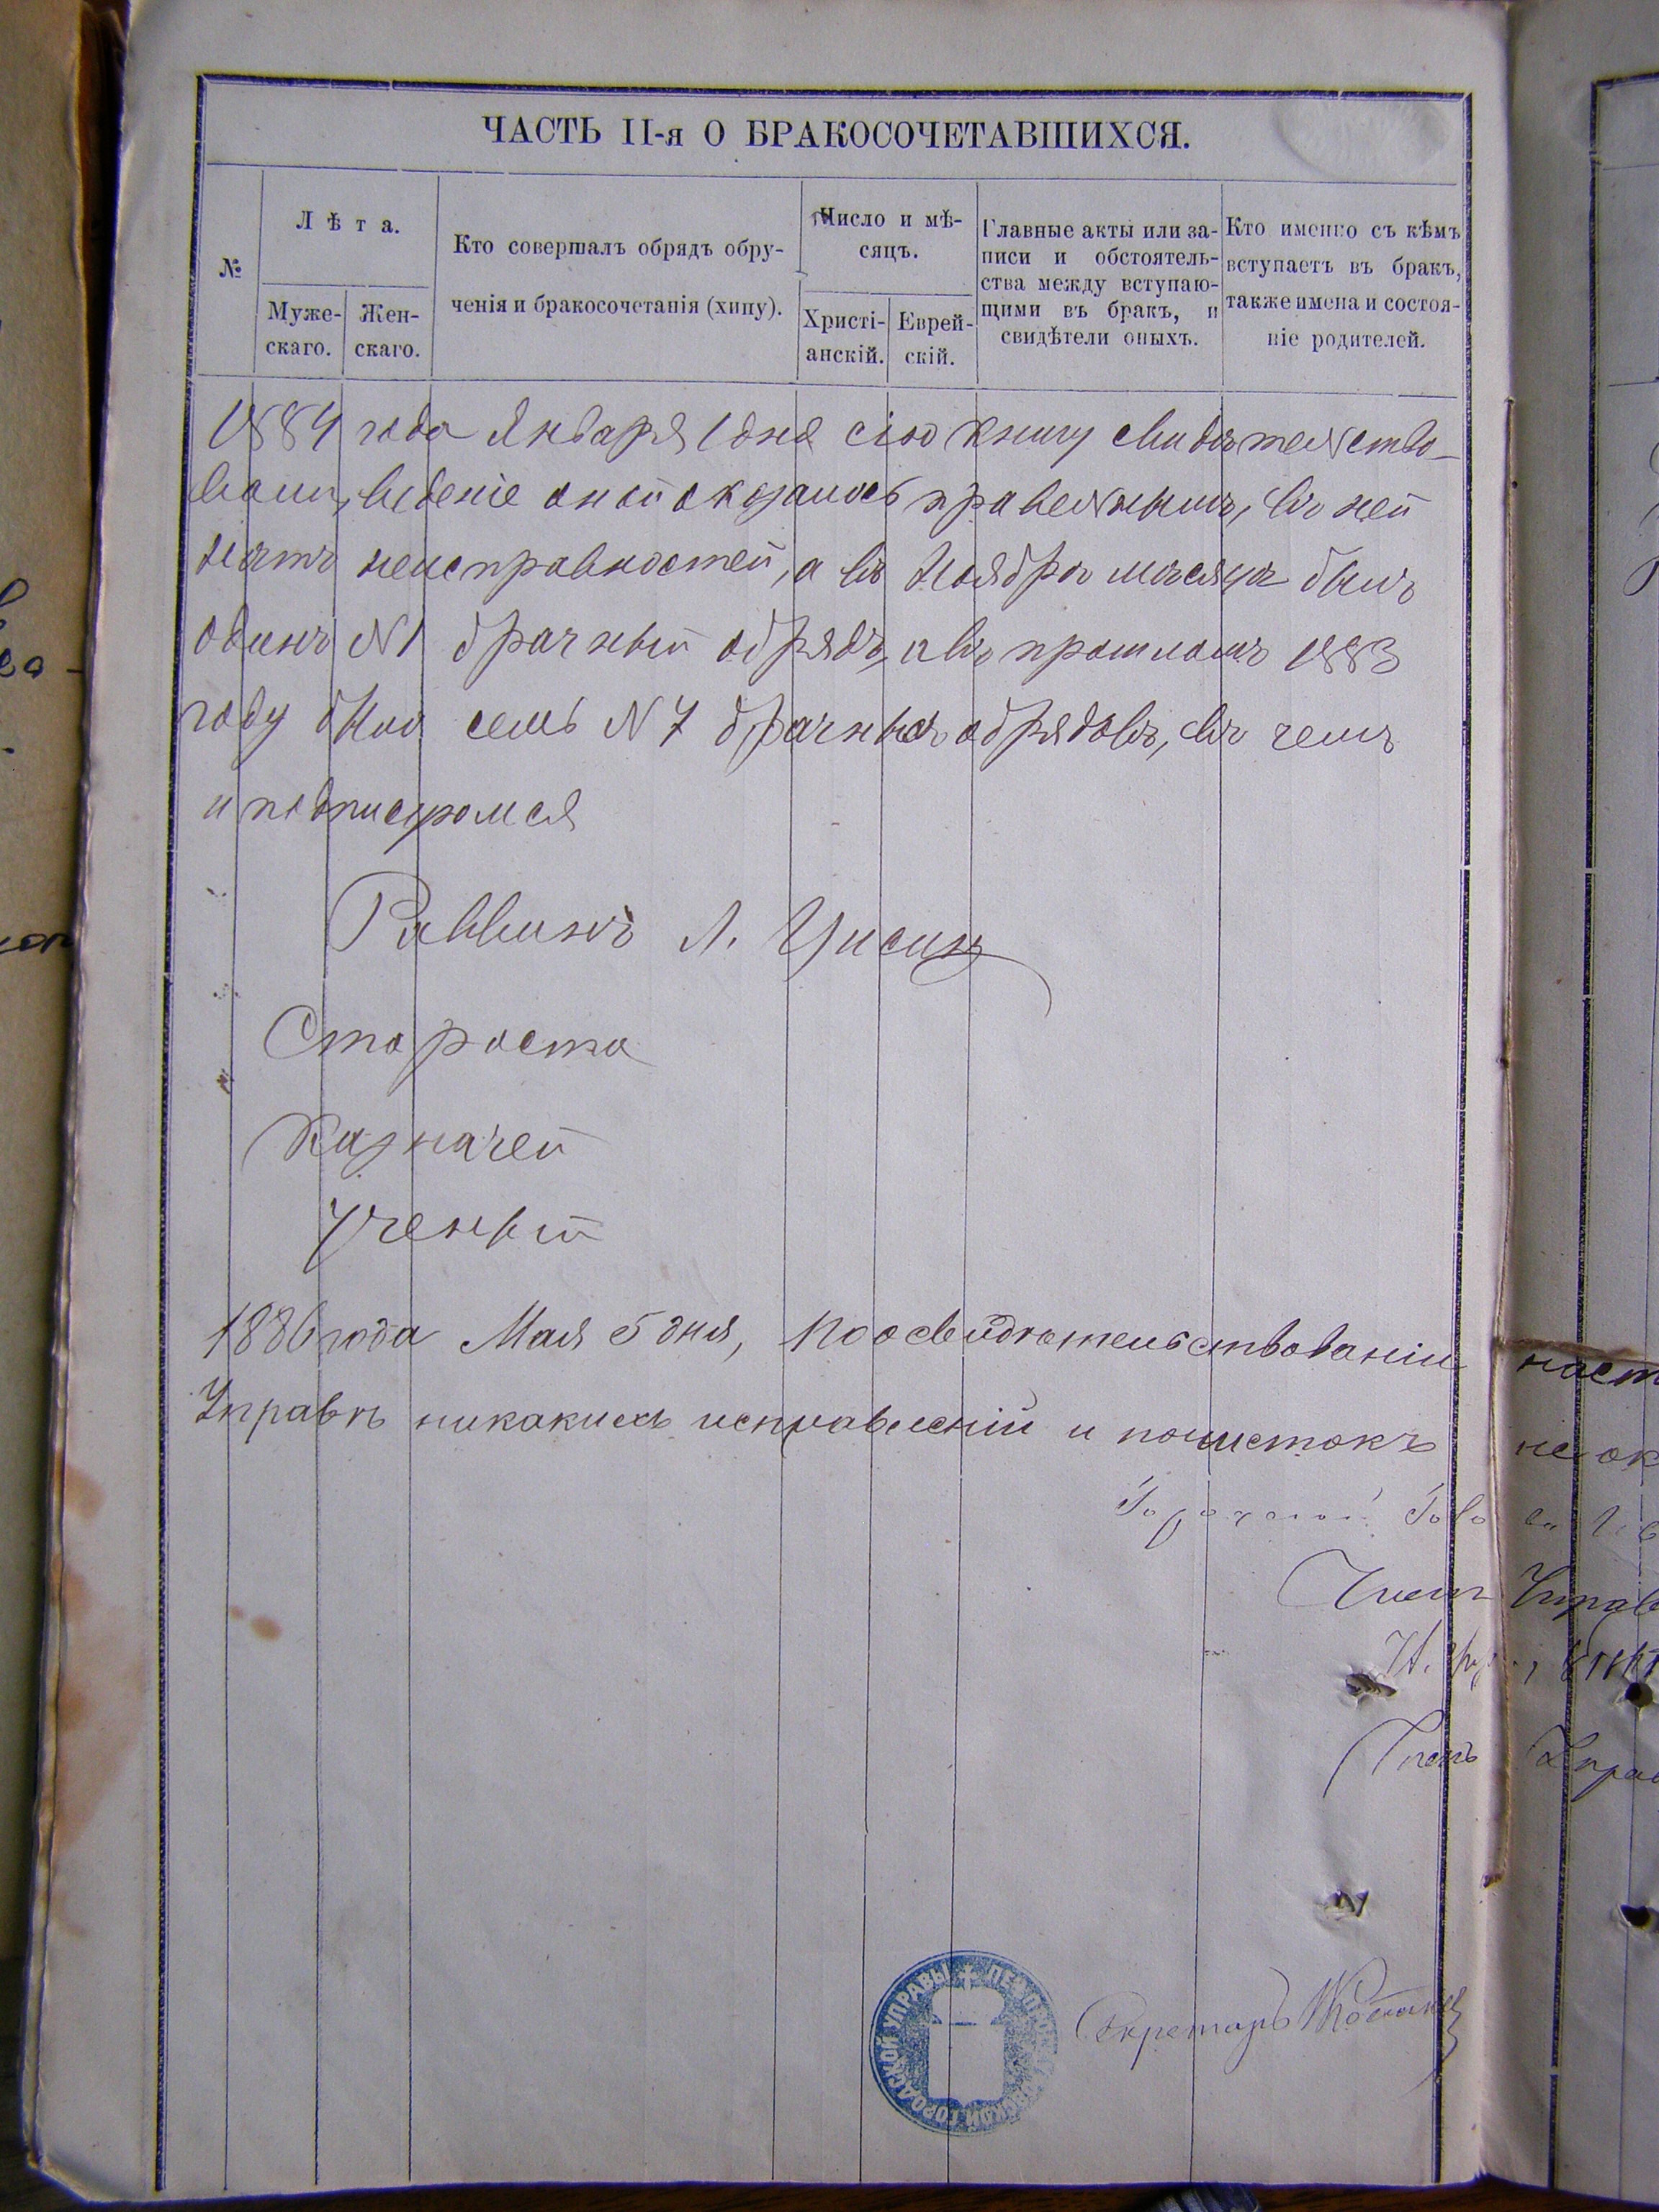 ЧАСТЬ II-я О БРАКОСОЧЕТАВШИХСЯ.
№
Лѣта.
Муже-
скаго.
Жен-
скаго.
Кто совершалъ обрядъ обру-
ченія и бракосочетанія (хипу).
Число и мѣ-
сяцъ.
Христі-
анскій.
Еврей-
скій.
Главные акты или за-
писи и обстоятель-
ства между вступаю-
щими въ бракъ, и
свидѣтели оныхъ.
Кто именно съ кѣмъ
вступаетъ въ бракъ,
также имена и состоя-
ніе родителей.
1884 года Января 1 дня сію книгу свидѣтельство-
вали, веденіе оной оказалось правельнымъ, въ ней
нѣтъ неисправностей, а въ Ноябрѣ мѣсяцѣ былъ
одинъ N1 брачный обрядъ, а въ прошломъ 1883
году было семь N 7 брачныхъ обрядовъ, въ чемъ
и подписуромся
Раввинъ Л. Цисинъ
Староста
Казначей
Ученый
1886 года Мая 5 дня, по освидѣтельствованіи наст
Управѣ никакихъ исправленій и почистокъ не ок
Городской Голо
Членъ Управ
Членъ Управ
Секретарь
ГОРОДСКОЙ УПРАВЫ